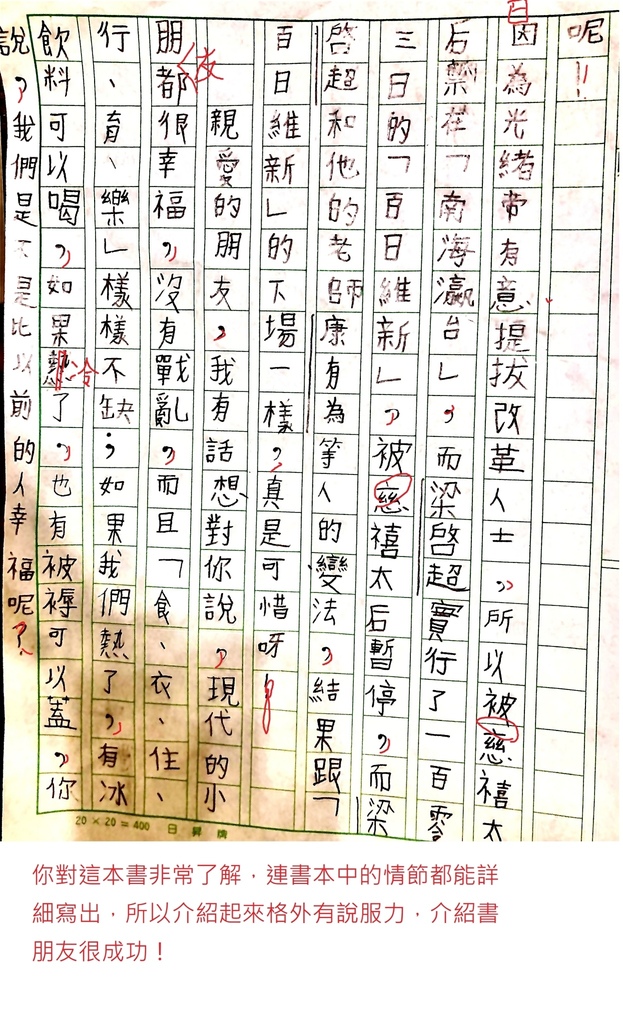 呢!!
因為光緒帝有意提拔改革人士,所以被慈禧太
后禁在「南海瀛台」,而梁啟超實行了一百零
三日的「百日維新」,被慈禧太后暫停,而梁
啟超和他的老師康有為等人的變法,結果跟「
百日維新」的下場一樣,真是可惜呀!
親愛的朋友,我有話想對你說,現代的小
朋都很幸福,沒有戰亂,而且「食、衣、住、
友
行、育、樂」樣樣不缺;如果我們熱了,有冰
飲料可以喝,如果熱了,也有被褥可以蓋,你
冷
說,我們是不是比以前的人幸福呢?
20×20=400 日昇牌
你對這本書非常了解,連書本中的情節都能詳
細寫出,所以介紹起來格外有說服力,介紹書
朋友很成功!